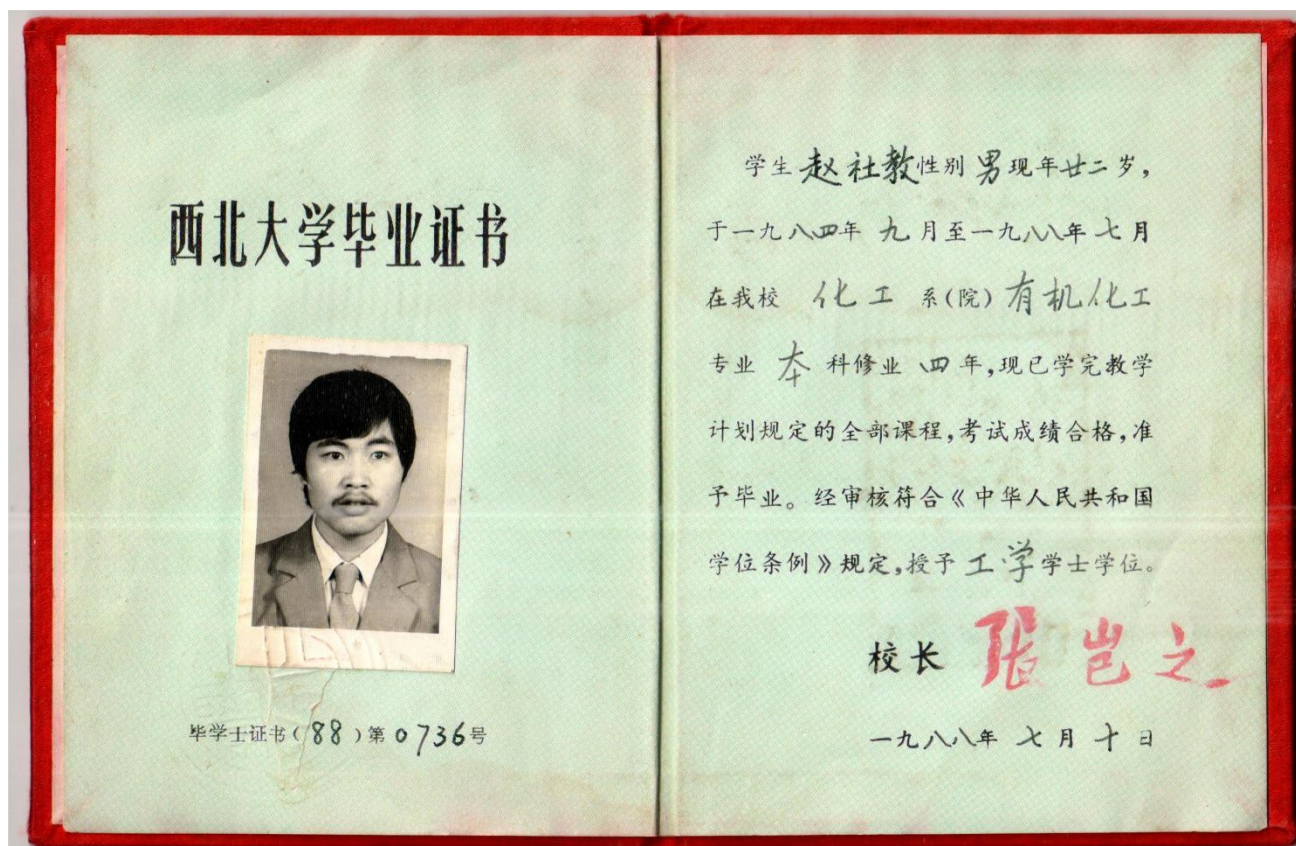 西北大学毕业证书
毕学士证书(88)第0736号
学生赵社教性别男现年廿二岁,
于一九八四年九月至一九八八年七月
在我校化工系(院)有机化工
专业本科修业四年,现已学完教学
计划规定的全部课程,考试成绩合格,准
予毕业。经审核符合《中华人民共和国
学位条例》规定,授予工学学士学位。
校长 张岂之
一九八八年七月十日